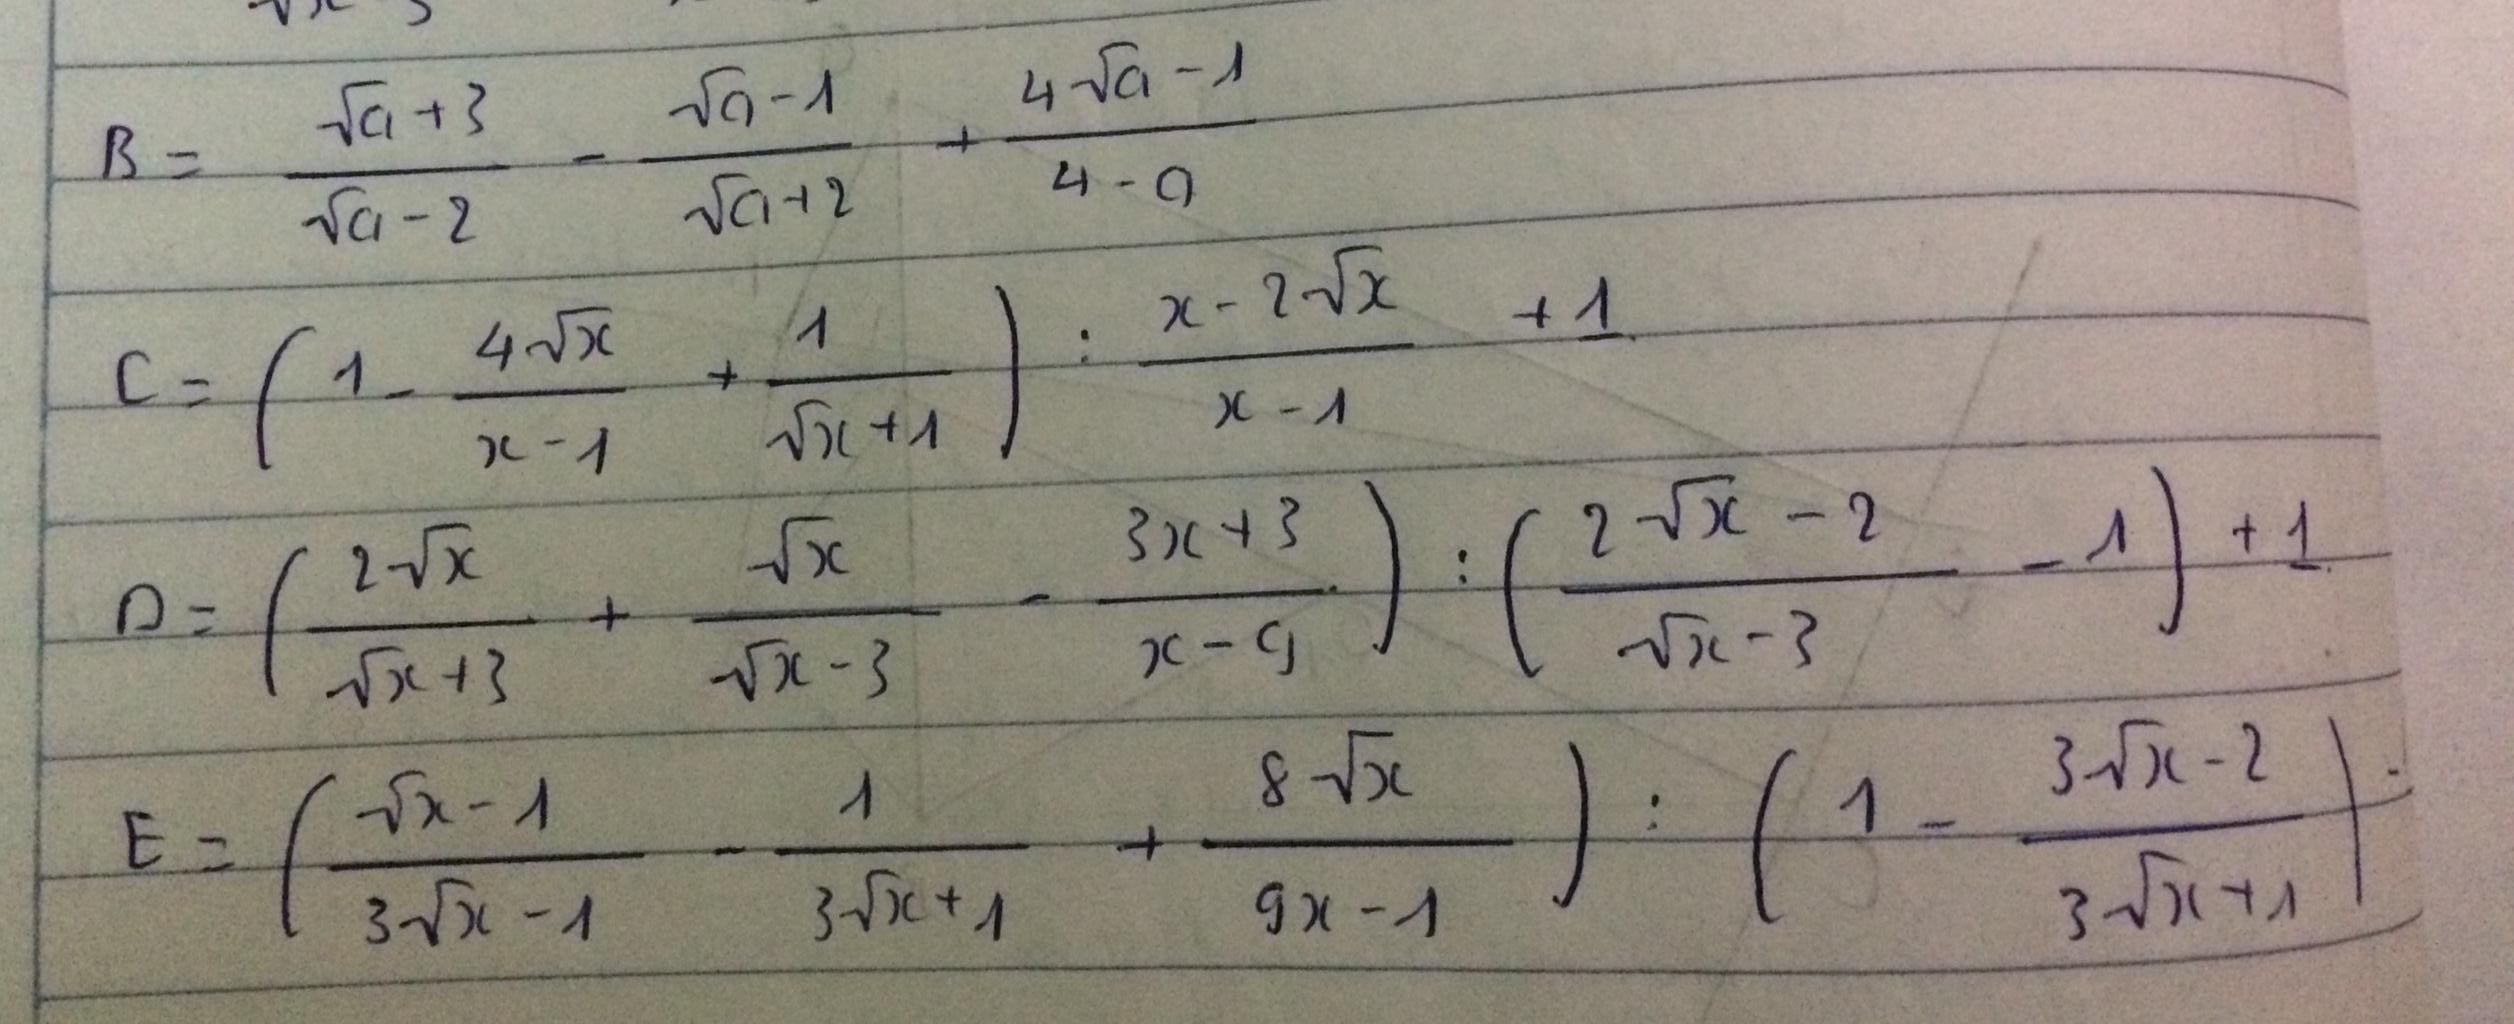 B = \frac{\sqrt{a}+3}{\sqrt{a}-2} - \frac{\sqrt{a}-1}{\sqrt{a}+2} + \frac{4\sqrt{a}-1}{4-a}
C = \left( 1 - \frac{4\sqrt{x}}{x-1} + \frac{1}{\sqrt{x}+1} \right) : \frac{x-2\sqrt{x}}{x-1} + 1
D = \left( \frac{2\sqrt{x}}{\sqrt{x}+3} + \frac{\sqrt{x}}{\sqrt{x}-3} - \frac{3x+3}{x-9} \right) : \left( \frac{2\sqrt{x}-2}{\sqrt{x}-3} - 1 \right) + 1
E = \left( \frac{\sqrt{x}-1}{3\sqrt{x}-1} - \frac{1}{3\sqrt{x}+1} + \frac{8\sqrt{x}}{9x-1} \right) : \left( 1 - \frac{3\sqrt{x}-2}{3\sqrt{x}+1} \right)